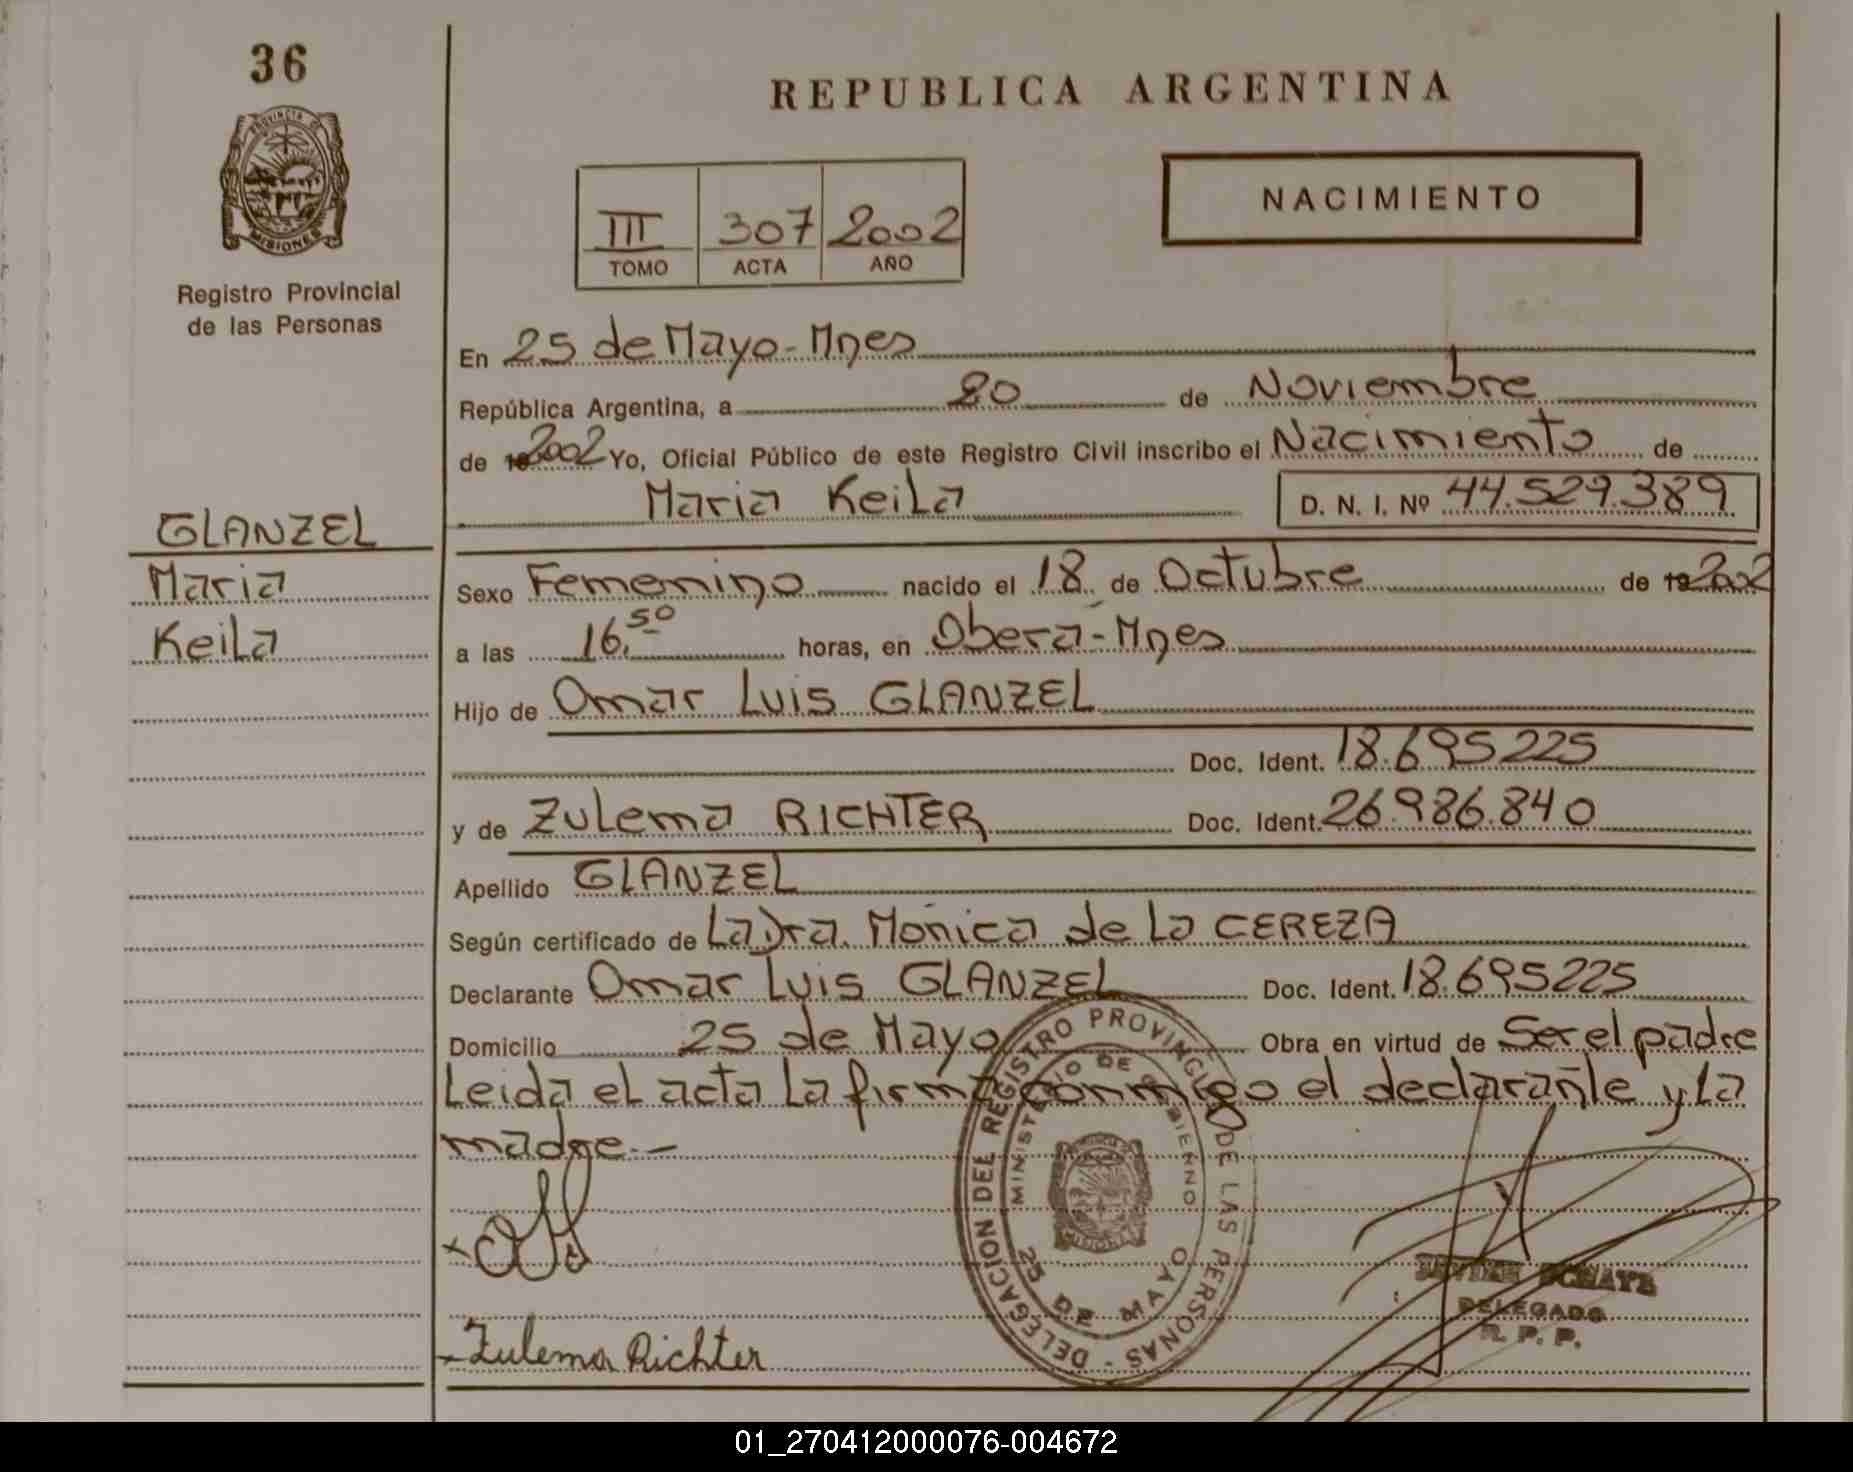 36
PROVINCIA DE
MISIONES
Registro Provincial
de las Personas
GLANZEL
Maria
Keila
REPUBLICA ARGENTINA
III 307 2002
TOMO ACTA AÑO
NACIMIENTO
En 25 de Mayo-Mnes
República Argentina, a 20 de Noviembre
de 19 2002 Yo, Oficial Público de este Registro Civil inscribo el Nacimiento de
Maria Keila D. N. I. Nº 44.529.389
Sexo Femenino nacido el 18 de Octubre de 19 2002
a las 16.50 horas, en Oberá-Mnes
Hijo de Omar Luis GLANZEL
Doc. Ident. 18.695225
y de Zulema RICHTER Doc. Ident. 26.986.840
Apellido GLANZEL
Según certificado de La Dra. Mónica de la CEREZA
Declarante Omar Luis GLANZEL Doc. Ident. 18.695225
Domicilio 25 de Mayo Obra en virtud de Ser el padre
Leida el acta La firma conmigo el declarante y La
madre.-
DELEGACION DEL REGISTRO PROVINCIAL DE LAS PERSONAS -
MINISTERIO DE GOBIERNO
25 DE MAYO
MISIONES
DELEGADO
R. P. P.
Zulema Richter
01_270412000076-004672